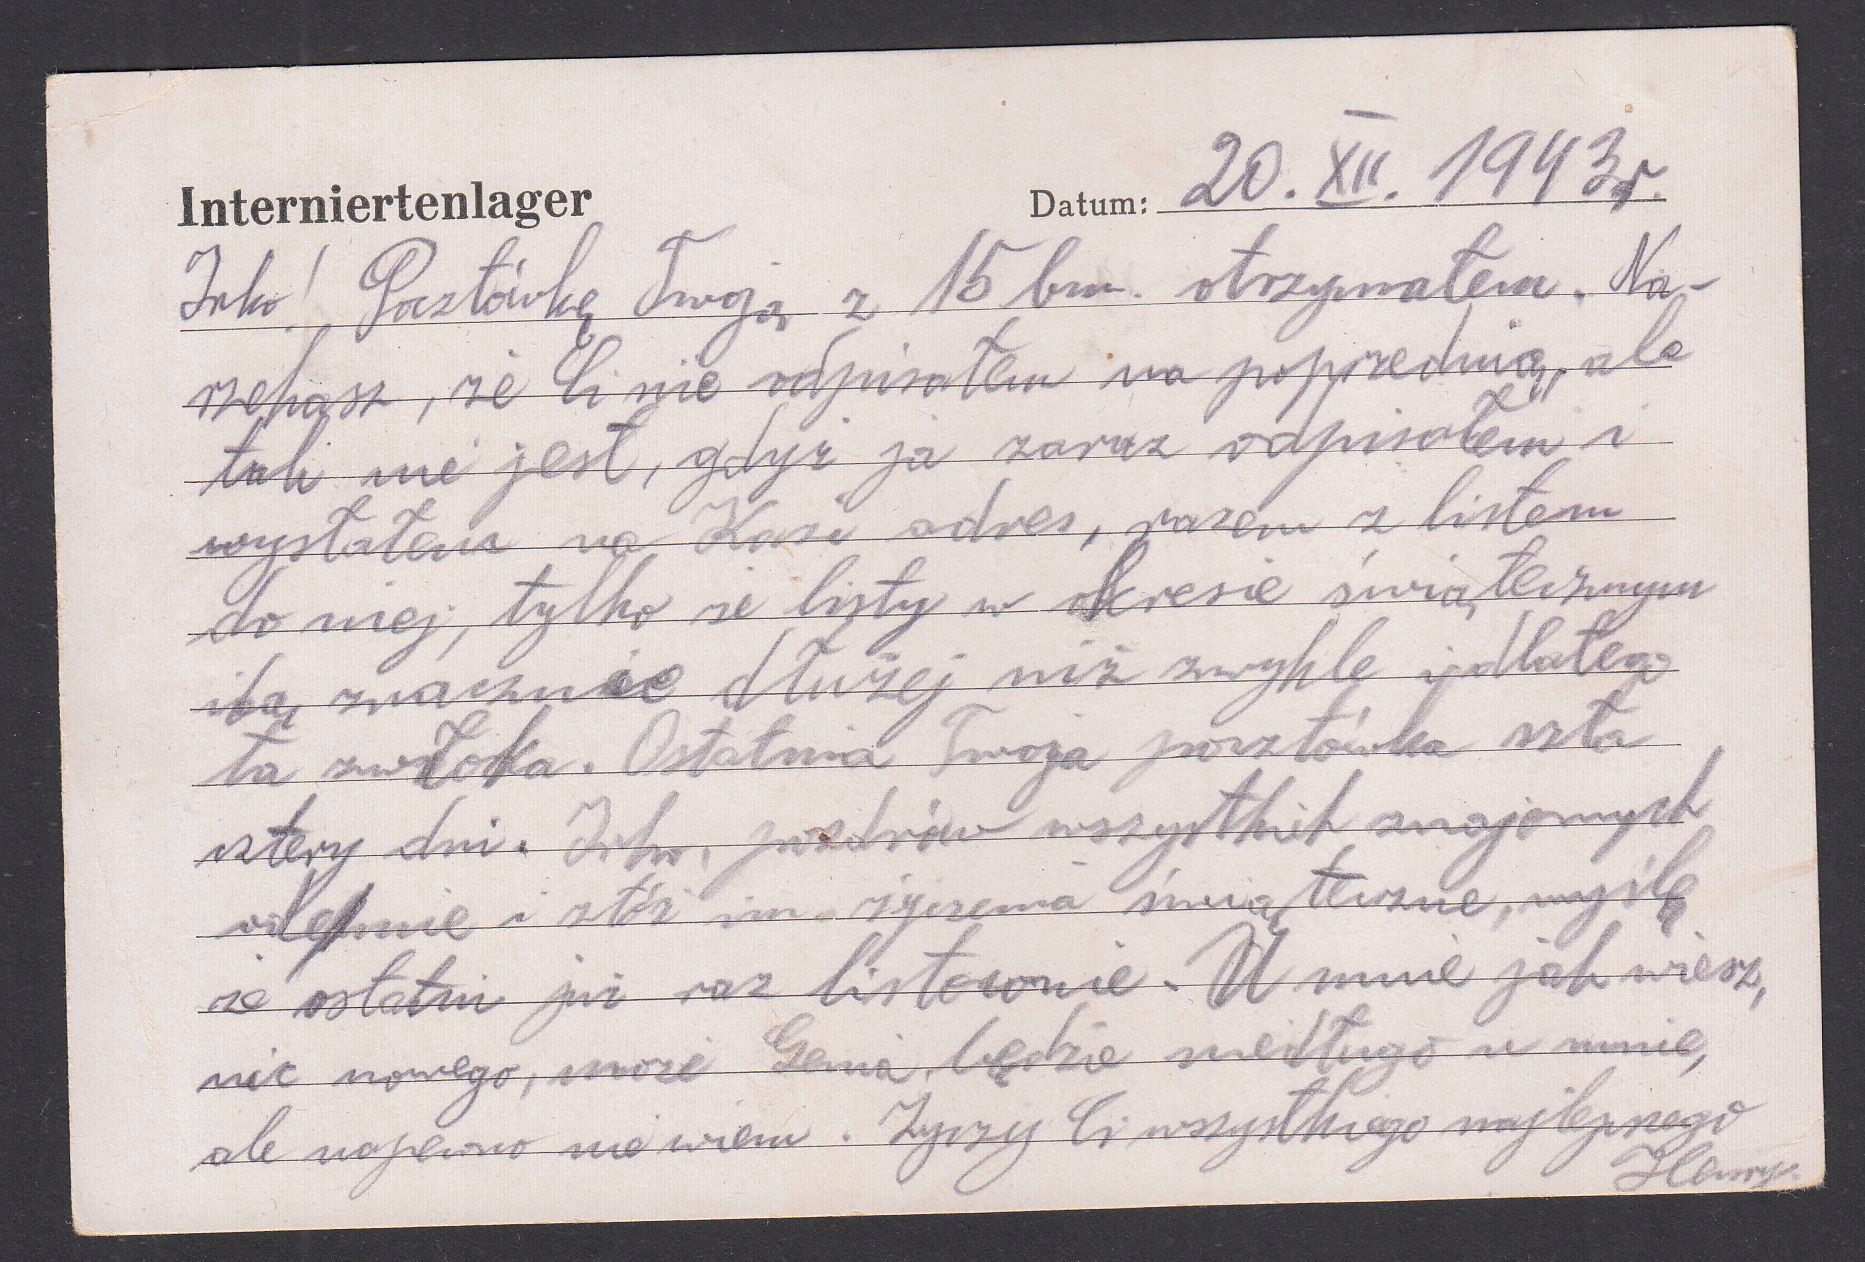 Interniertenlager
Datum: 20. XII. 1943r.
Irko! Pocztówkę Twoją z 15 bm. otrzymałem. Na-
rzekasz, że Ci nie odpisałem na poprzednią, ale
tak nie jest, gdyż ja zaraz odpisałem i
wysłałem na Kazi adres, razem z listem
do niej, tylko że listy w okresie świątecznym
idą znacznie dłużej niż zwykle i dlatego
ta zwłoka. Ostatnia Twoja pocztówka szła
cztery dni. Irko, pozdrów wszystkich znajomych
odemnie i złóż im życzenia świąteczne, myślę
że ostatni już raz listownie. U mnie jak wiesz,
nic nowego, może Genia będzie niedługo u mnie,
ale napewno nie wiem. Życzę Ci wszystkiego najlepszego